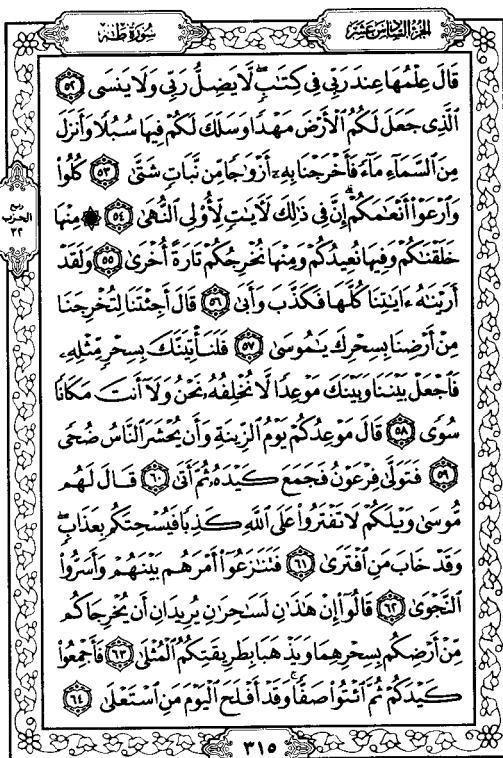 سُورَةُ طٰهٰ
الجُزْءُ السَّادِسَ عَشَرَ
قَالَ عِلْمُهَا عِندَ رَبِّي فِي كِتَٰبٍ ۖ لَّا يَضِلُّ رَبِّي وَلَا يَنسَى ٥٢
ٱلَّذِي جَعَلَ لَكُمُ ٱلْأَرْضَ مَهْدًا وَسَلَكَ لَكُمْ فِيهَا سُبُلًا وَأَنزَلَ
مِنَ ٱلسَّمَآءِ مَآءً فَأَخْرَجْنَا بِهِۦٓ أَزْوَٰجًا مِّن نَّبَاتٍ شَتَّىٰ ٥٣ كُلُوا۟
وَٱرْعَوْا۟ أَنْعَٰمَكُمْ ۗ إِنَّ فِي ذَٰلِكَ لَأٓيَٰتٍ لِّأُو۟لِي ٱلنُّهَىٰ ٥٤ ۞ مِنْهَا
خَلَقْنَٰكُمْ وَفِيهَا نُعِيدُكُمْ وَمِنْهَا نُخْرِجُكُمْ تَارَةً أُخْرَىٰ ٥٥ وَلَقَدْ
أَرَيْنَٰهُ ءَايَٰتِنَا كُلَّهَا فَكَذَّبَ وَأَبَىٰ ٥٦ قَالَ أَجِئْتَنَا لِتُخْرِجَنَا
مِنْ أَرْضِنَا بِسِحْرِكَ يَٰمُوسَىٰ ٥٧ فَلَنَأْتِيَنَّكَ بِسِحْرٍ مِّثْلِهِۦ
فَٱجْعَلْ بَيْنَنَا وَبَيْنَكَ مَوْعِدًا لَّا نُخْلِفُهُۥ نَحْنُ وَلَآ أَنتَ مَكَانًا
سُوًى ٥٨ قَالَ مَوْعِدُكُمْ يَوْمُ ٱلزِّينَةِ وَأَن يُحْشَرَ ٱلنَّاسُ ضُحًى
٥٩ فَتَوَلَّىٰ فِرْعَوْنُ فَجَمَعَ كَيْدَهُۥ ثُمَّ أَتَىٰ ٦٠ قَالَ لَهُم
مُّوسَىٰ وَيْلَكُمْ لَا تَفْتَرُوا۟ عَلَى ٱللَّهِ كَذِبًا فَيُسْحِتَكُم بِعَذَابٍ ۖ
وَقَدْ خَابَ مَنِ ٱفْتَرَىٰ ٦١ فَتَنَٰزَعُوٓا۟ أَمْرَهُم بَيْنَهُمْ وَأَسَرُّوا۟
ٱلنَّجْوَىٰ ٦٢ قَالُوٓا۟ إِنْ هَٰذَٰنِ لَسَٰحِرَٰنِ يُرِيدَانِ أَن يُخْرِجَاكُم
مِّنْ أَرْضِكُم بِسِحْرِهِمَا وَيَذْهَبَا بِطَرِيقَتِكُمُ ٱلْمُثْلَىٰ ٦٣ فَأَجْمِعُوا۟
كَيْدَكُمْ ثُمَّ ٱئْتُوا۟ صَفًّا ۚ وَقَدْ أَفْلَحَ ٱلْيَوْمَ مَنِ ٱسْتَعْلَىٰ ٦٤
ربع
الحزب
٣٢
٣١٥